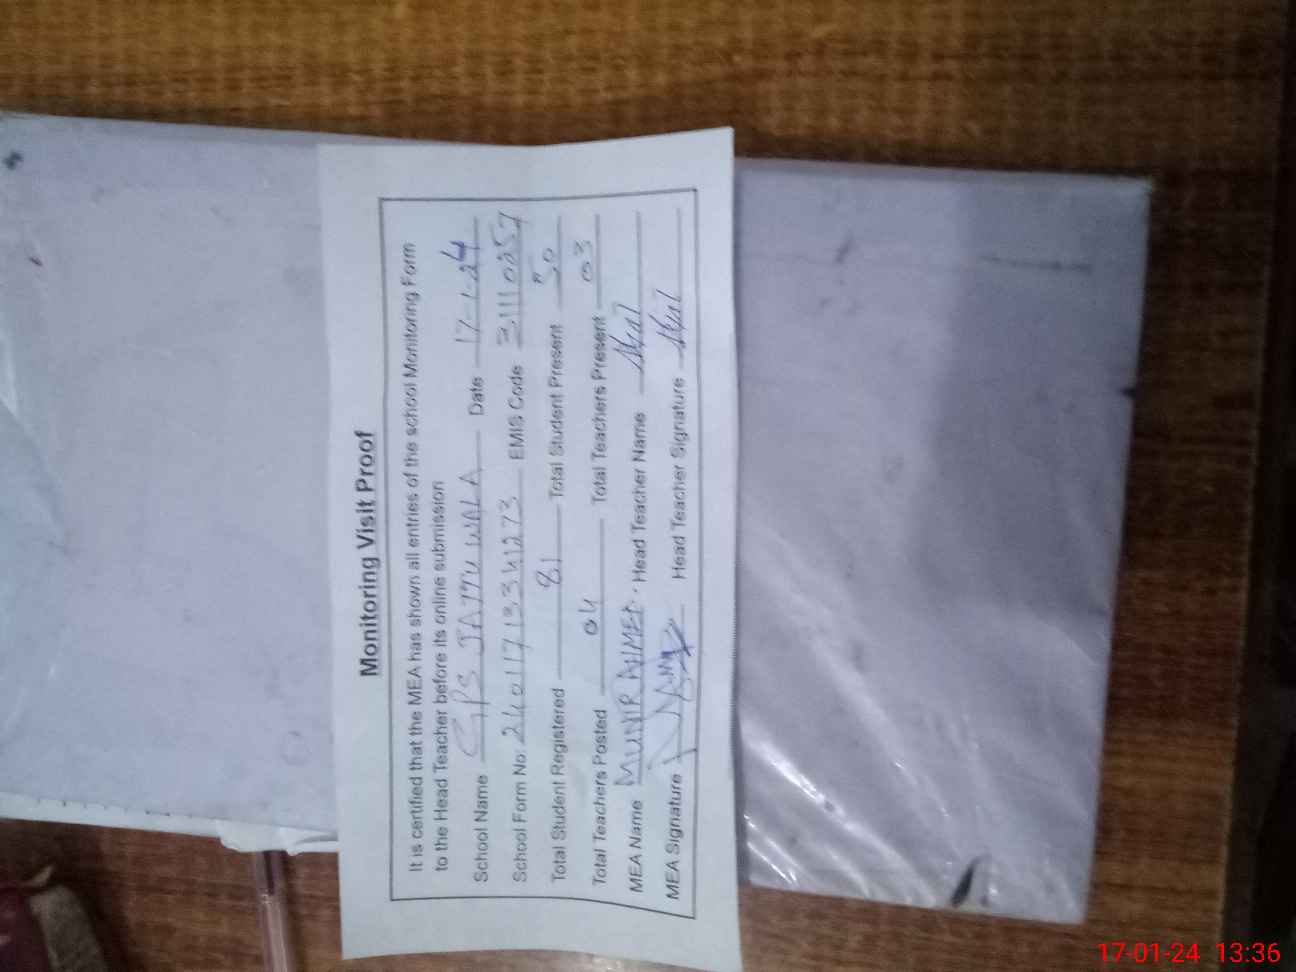 Monitoring Visit Proof
It is certified that the MEA has shown all entries of the school Monitoring Form
to the Head Teacher before its online submission
School Name GPS JATTU WALA Date 17-1-24
School Form No: 24011713341273 EMIS Code 31110257
Total Student Registered 81 Total Student Present 50
Total Teachers Posted 04 Total Teachers Present 03
MEA Name MUNIR AHMED. Head Teacher Name
MEA Signature Head Teacher Signature
17-01-24 13:36